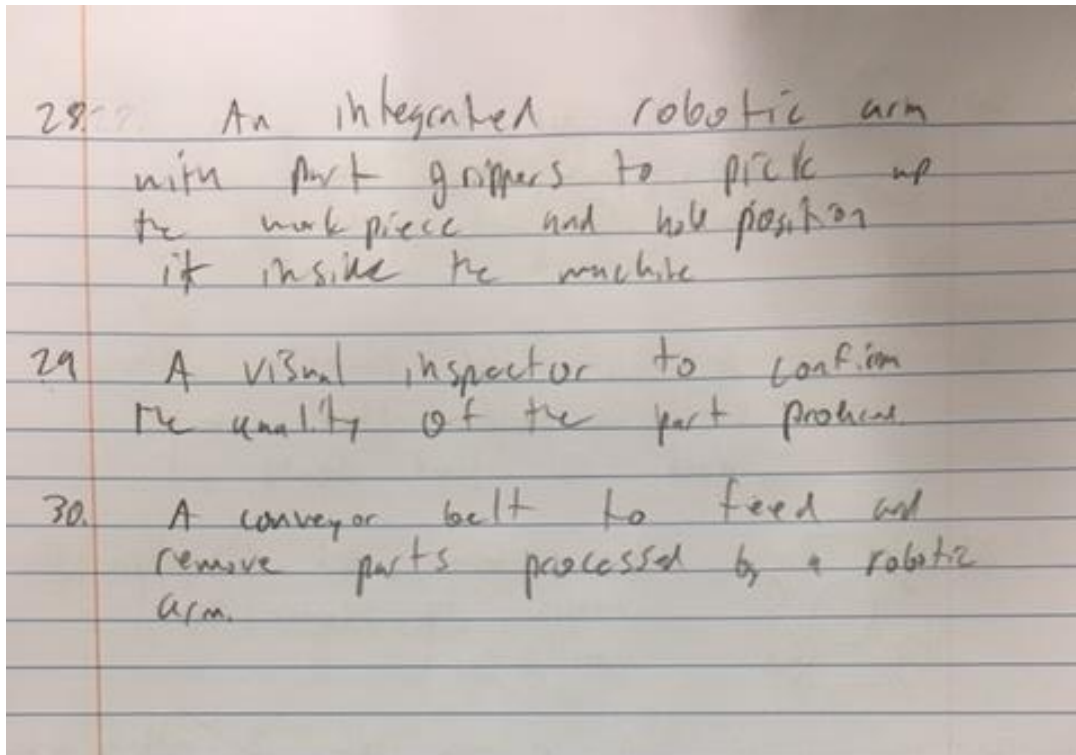 28. An integrated robotic arm
with part grippers to pick up
the workpiece and hold position
it inside the machine
29 A visual inspector to confirm
the quality of the part produced.
30. A conveyor belt to feed and
remove parts processed by a robotic
arm.